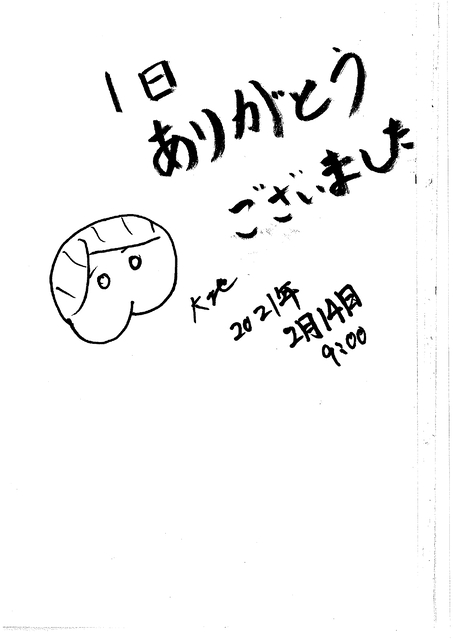 1日
ありがとう
ございました
2021年
2月14日
9:00